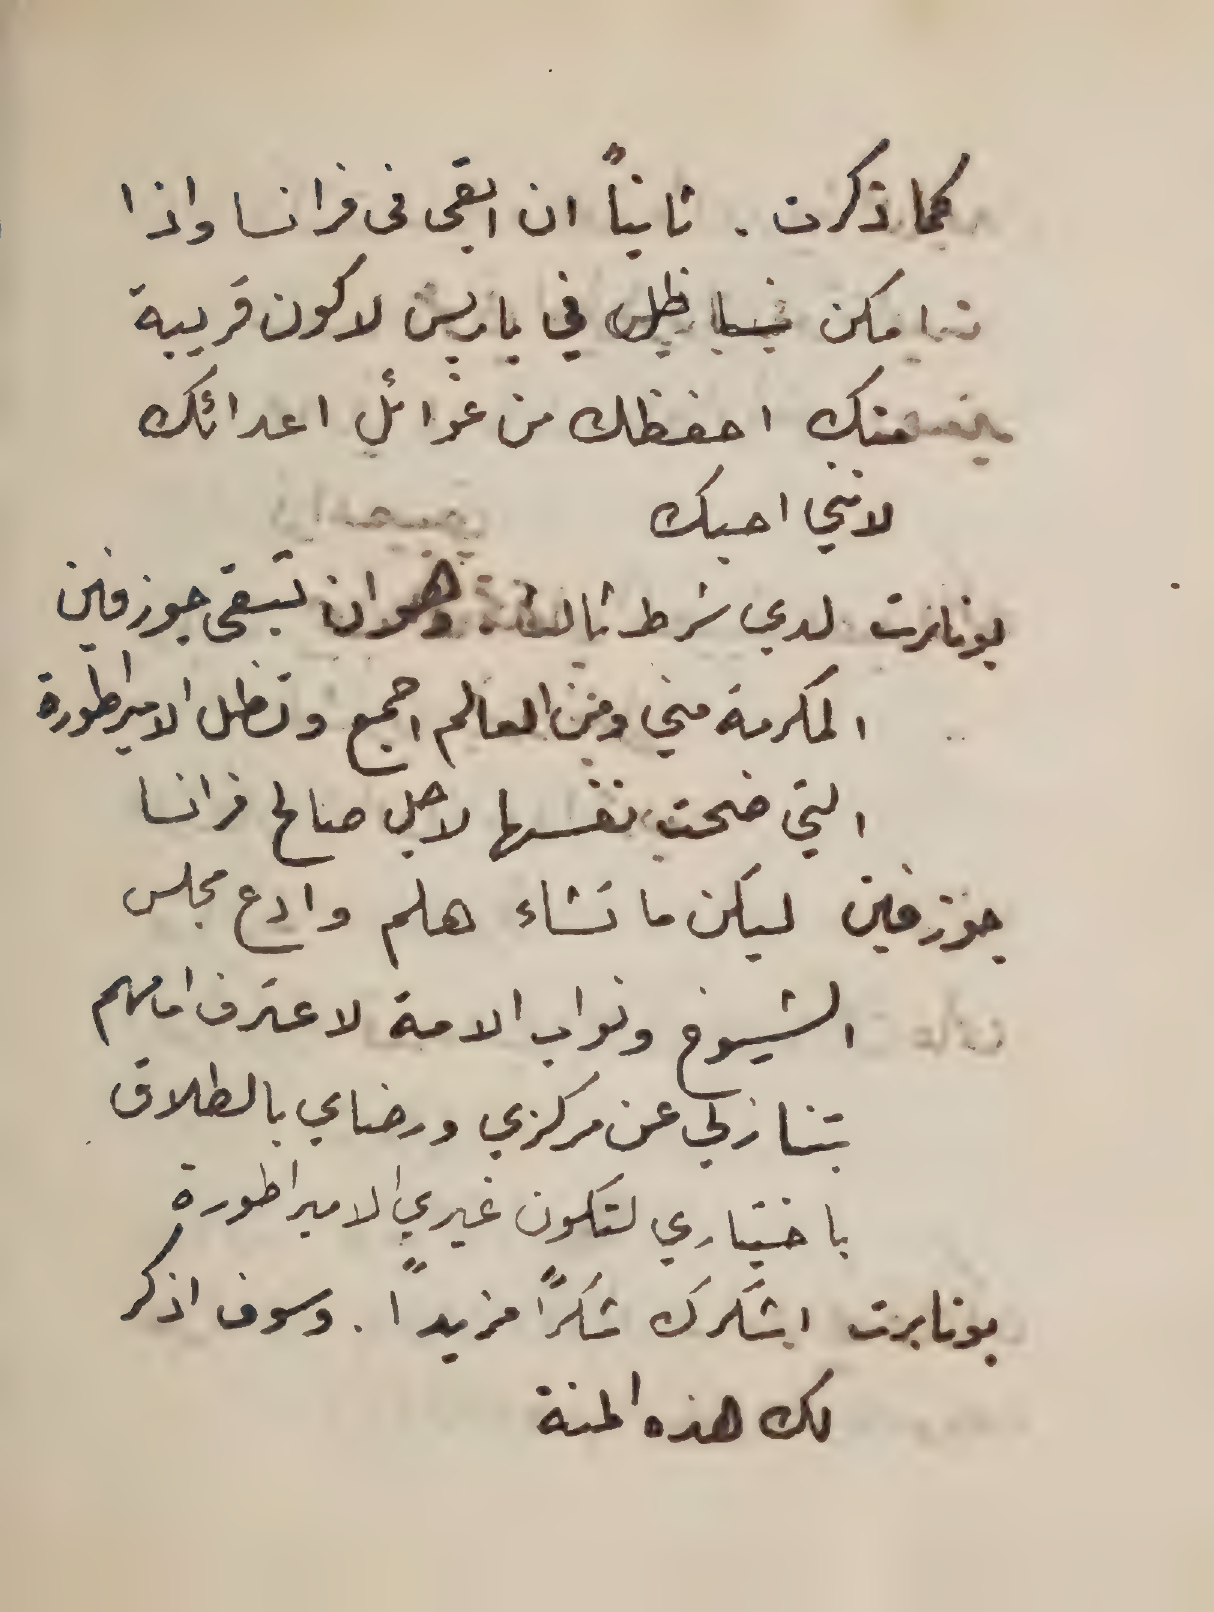 كما ذكرت . ثانياً ان ابقى فى فرانسا واذا
مكن ظل في باريس لاكون قريبة
منك احفظك من غوائل اعدائك
لانني احبك
بونابرت لدي شرط ثالث وهو ان تبقى جوزفين
المكرمة مني ومن العالم اجمع وتظل الامبراطورة
التي ضحت نفسها لاجل صالح فرانسا
جوزفين ليكن ما تشاء هلم وادع مجلس
الشيوخ ونواب الامة لاعترف امامهم
بتنازلي عن مركزي ورضاي بالطلاق
باختياري لتكون غيري الامبراطورة
بونابرت اشكرك شكراً مزيداً . وسوف اذكر
لك هذه المنة